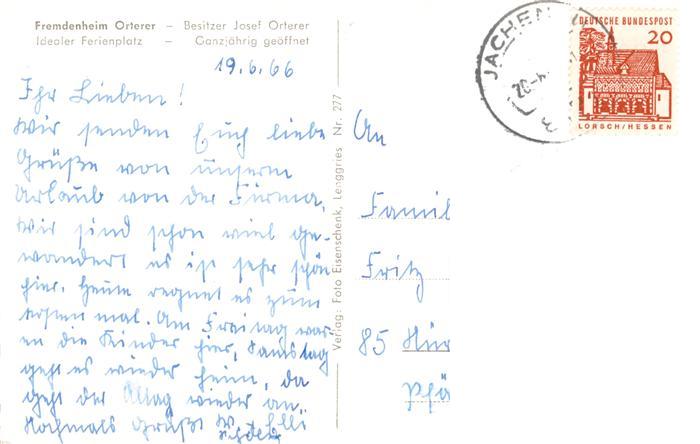 Fremdenheim Orterer – Besitzer Josef Orterer
Idealer Ferienplatz – Ganzjährig geöffnet
19.6.66
Ihr Lieben!
Wir senden Euch liebe
Grüße von unserm
Urlaub von der Firma,
wir sind schon viel ge-
wandert es ist sehr schön
hier, heute regnet es zum
ersten mal. Am Freitag war-
en die Kinder hier, Samstag
geht es wieder heim, da
geht der Alltag wieder an,
Nochmals Grüße
Elli
Verlag: Foto Eisenschenk, Lenggries Nr. 277
An
Famil
Fritz
85 Nür
JACHEN
DEUTSCHE BUNDESPOST
20
LORSCH/HESSEN